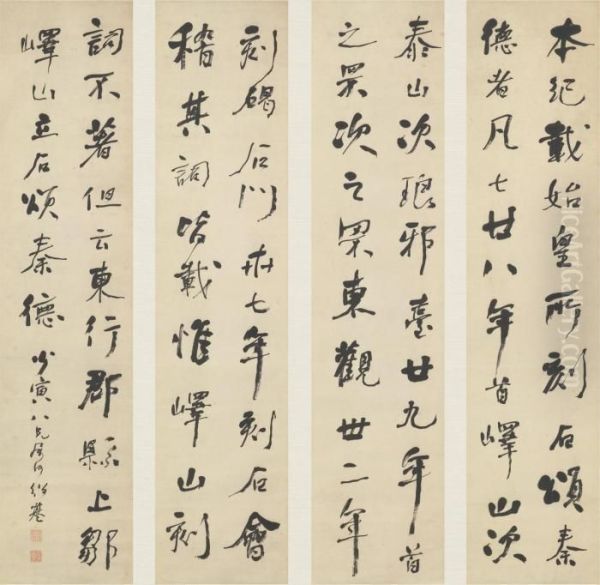 本紀載始皇所刻石頌秦
德者凡七廿八年首嶧山次
泰山次琅邪臺廿九年首
之罘次之罘東觀卅二年
刻碣石門卅七年刻石會
稽其詞皆載惟嶧山刻
詞不著但云東行郡縣上鄒
嶧山立石頌秦德 少寅八兄屬 何紹基